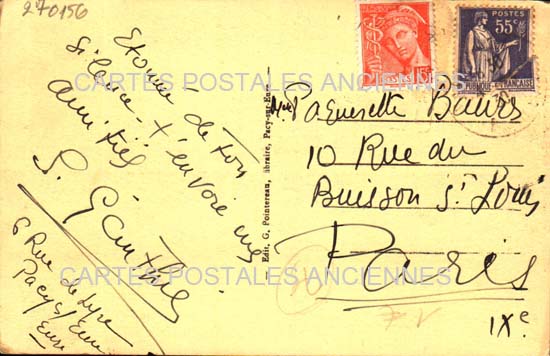 270156
Etonné de ton
silence - t'envoie mes
amitiés
S. Gauthié
6 Rue de Lyre
Pacy s/ Eure
Eure
Edit. G. Pointereau, libraire, Pacy-sur-Eure
POSTES
55c
RÉPUBLIQUE FRANÇAISE
Paquerette Baurs
10 Rue du
Buisson St Louis
Paris
IXe
CARTES POSTALES ANCIENNES
CARTES POSTALES ANCIENNES